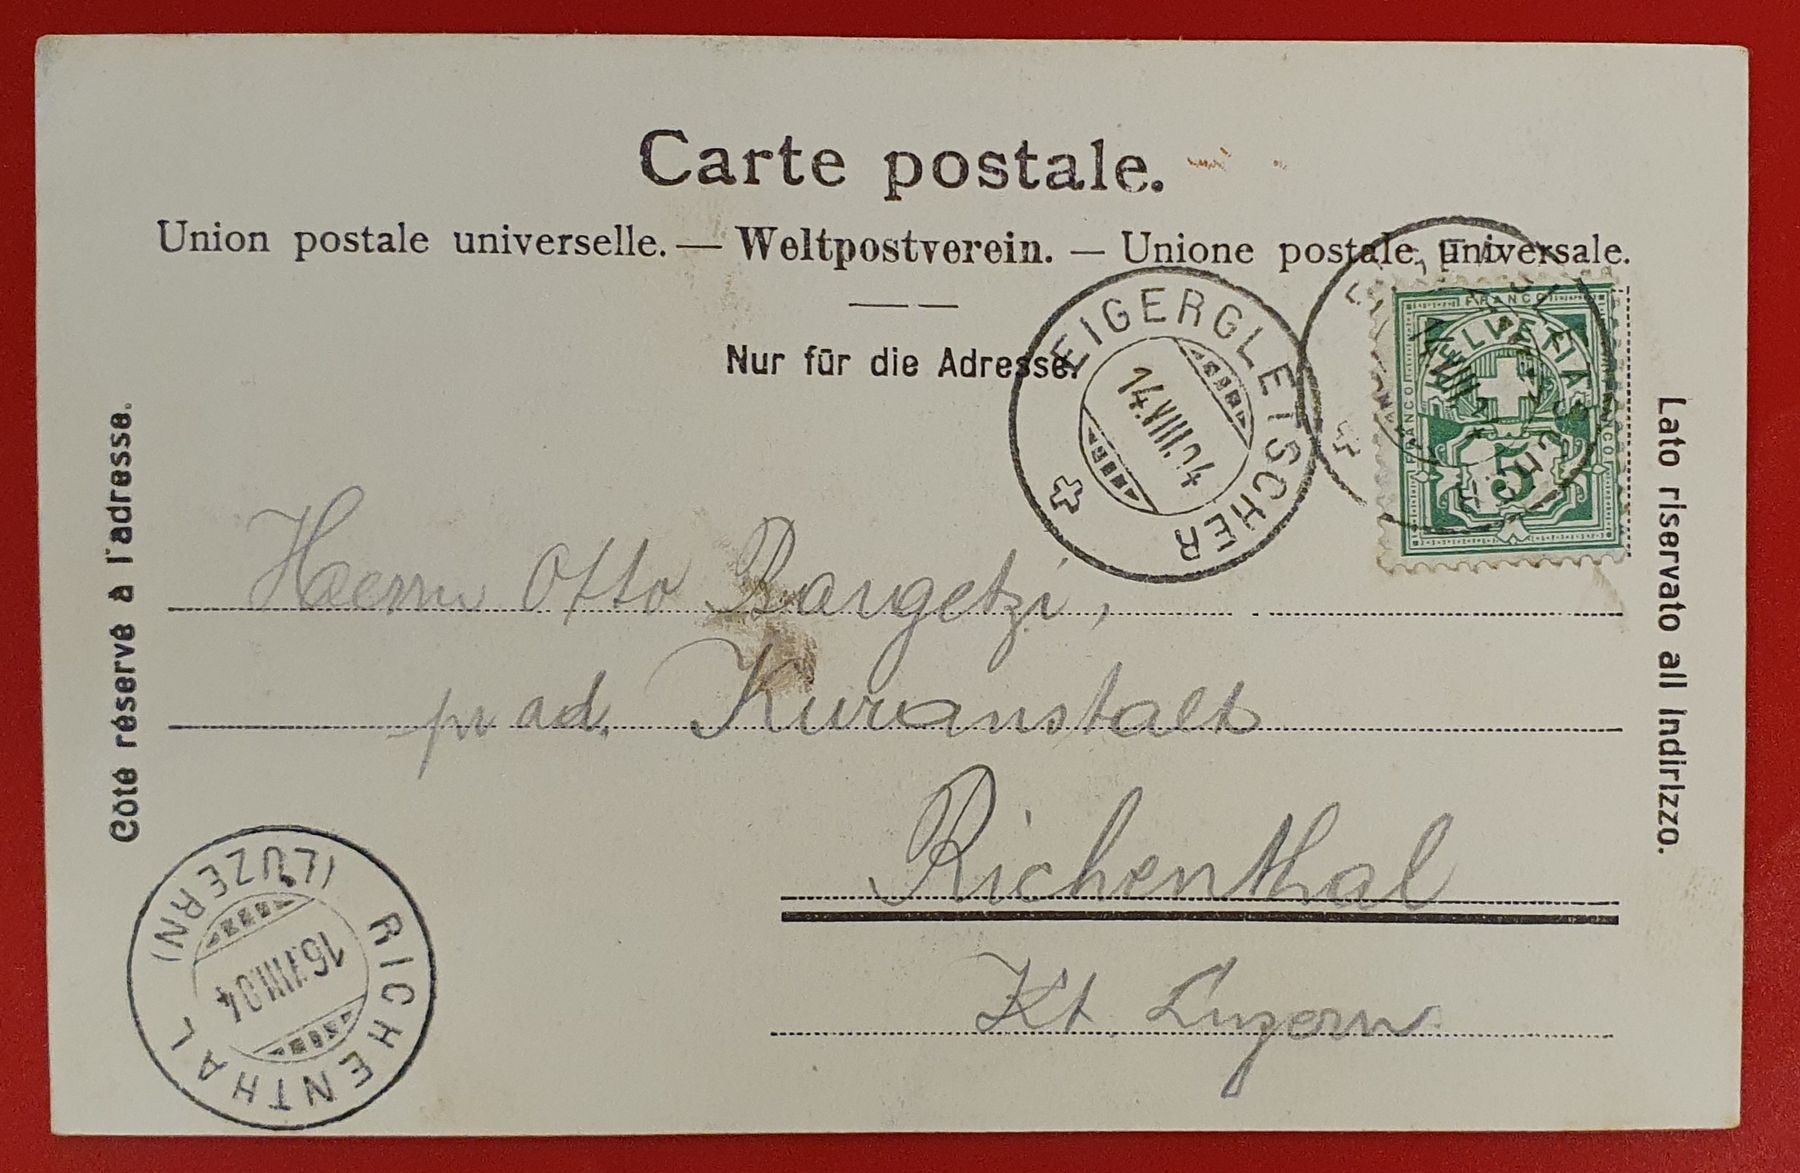 Carte postale.
Union postale universelle. — Weltpostverein. — Unione postale universale.
Nur für die Adresse.
Côté réservé à l'adresse.
Lato riservato all indirizzo.
EIGERGLETSCHER
14.VIII.04
FRANCO
HELVETIA
FRANCO
FRANCO
5
Herrn Otto Bargetzi,
pr ad. Kuranstalt
Richenthal
Kt. Luzern
RICHENTHAL
(LUZERN)
16.VIII.04